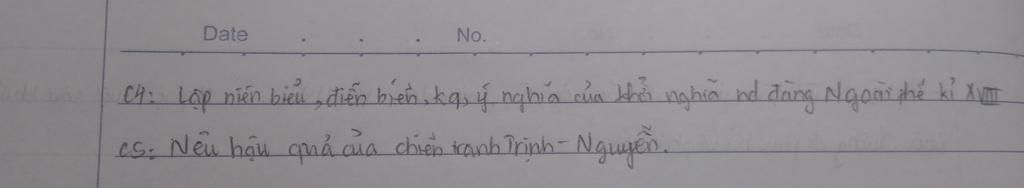 Date . . . No.
C4: Lập niên biểu, diễn biến, kq, ý nghĩa của khởi nghĩa nd đàng Ngoài thế kỉ XVIII
C5: Nêu hậu quả của chiến tranh Trịnh - Nguyễn.